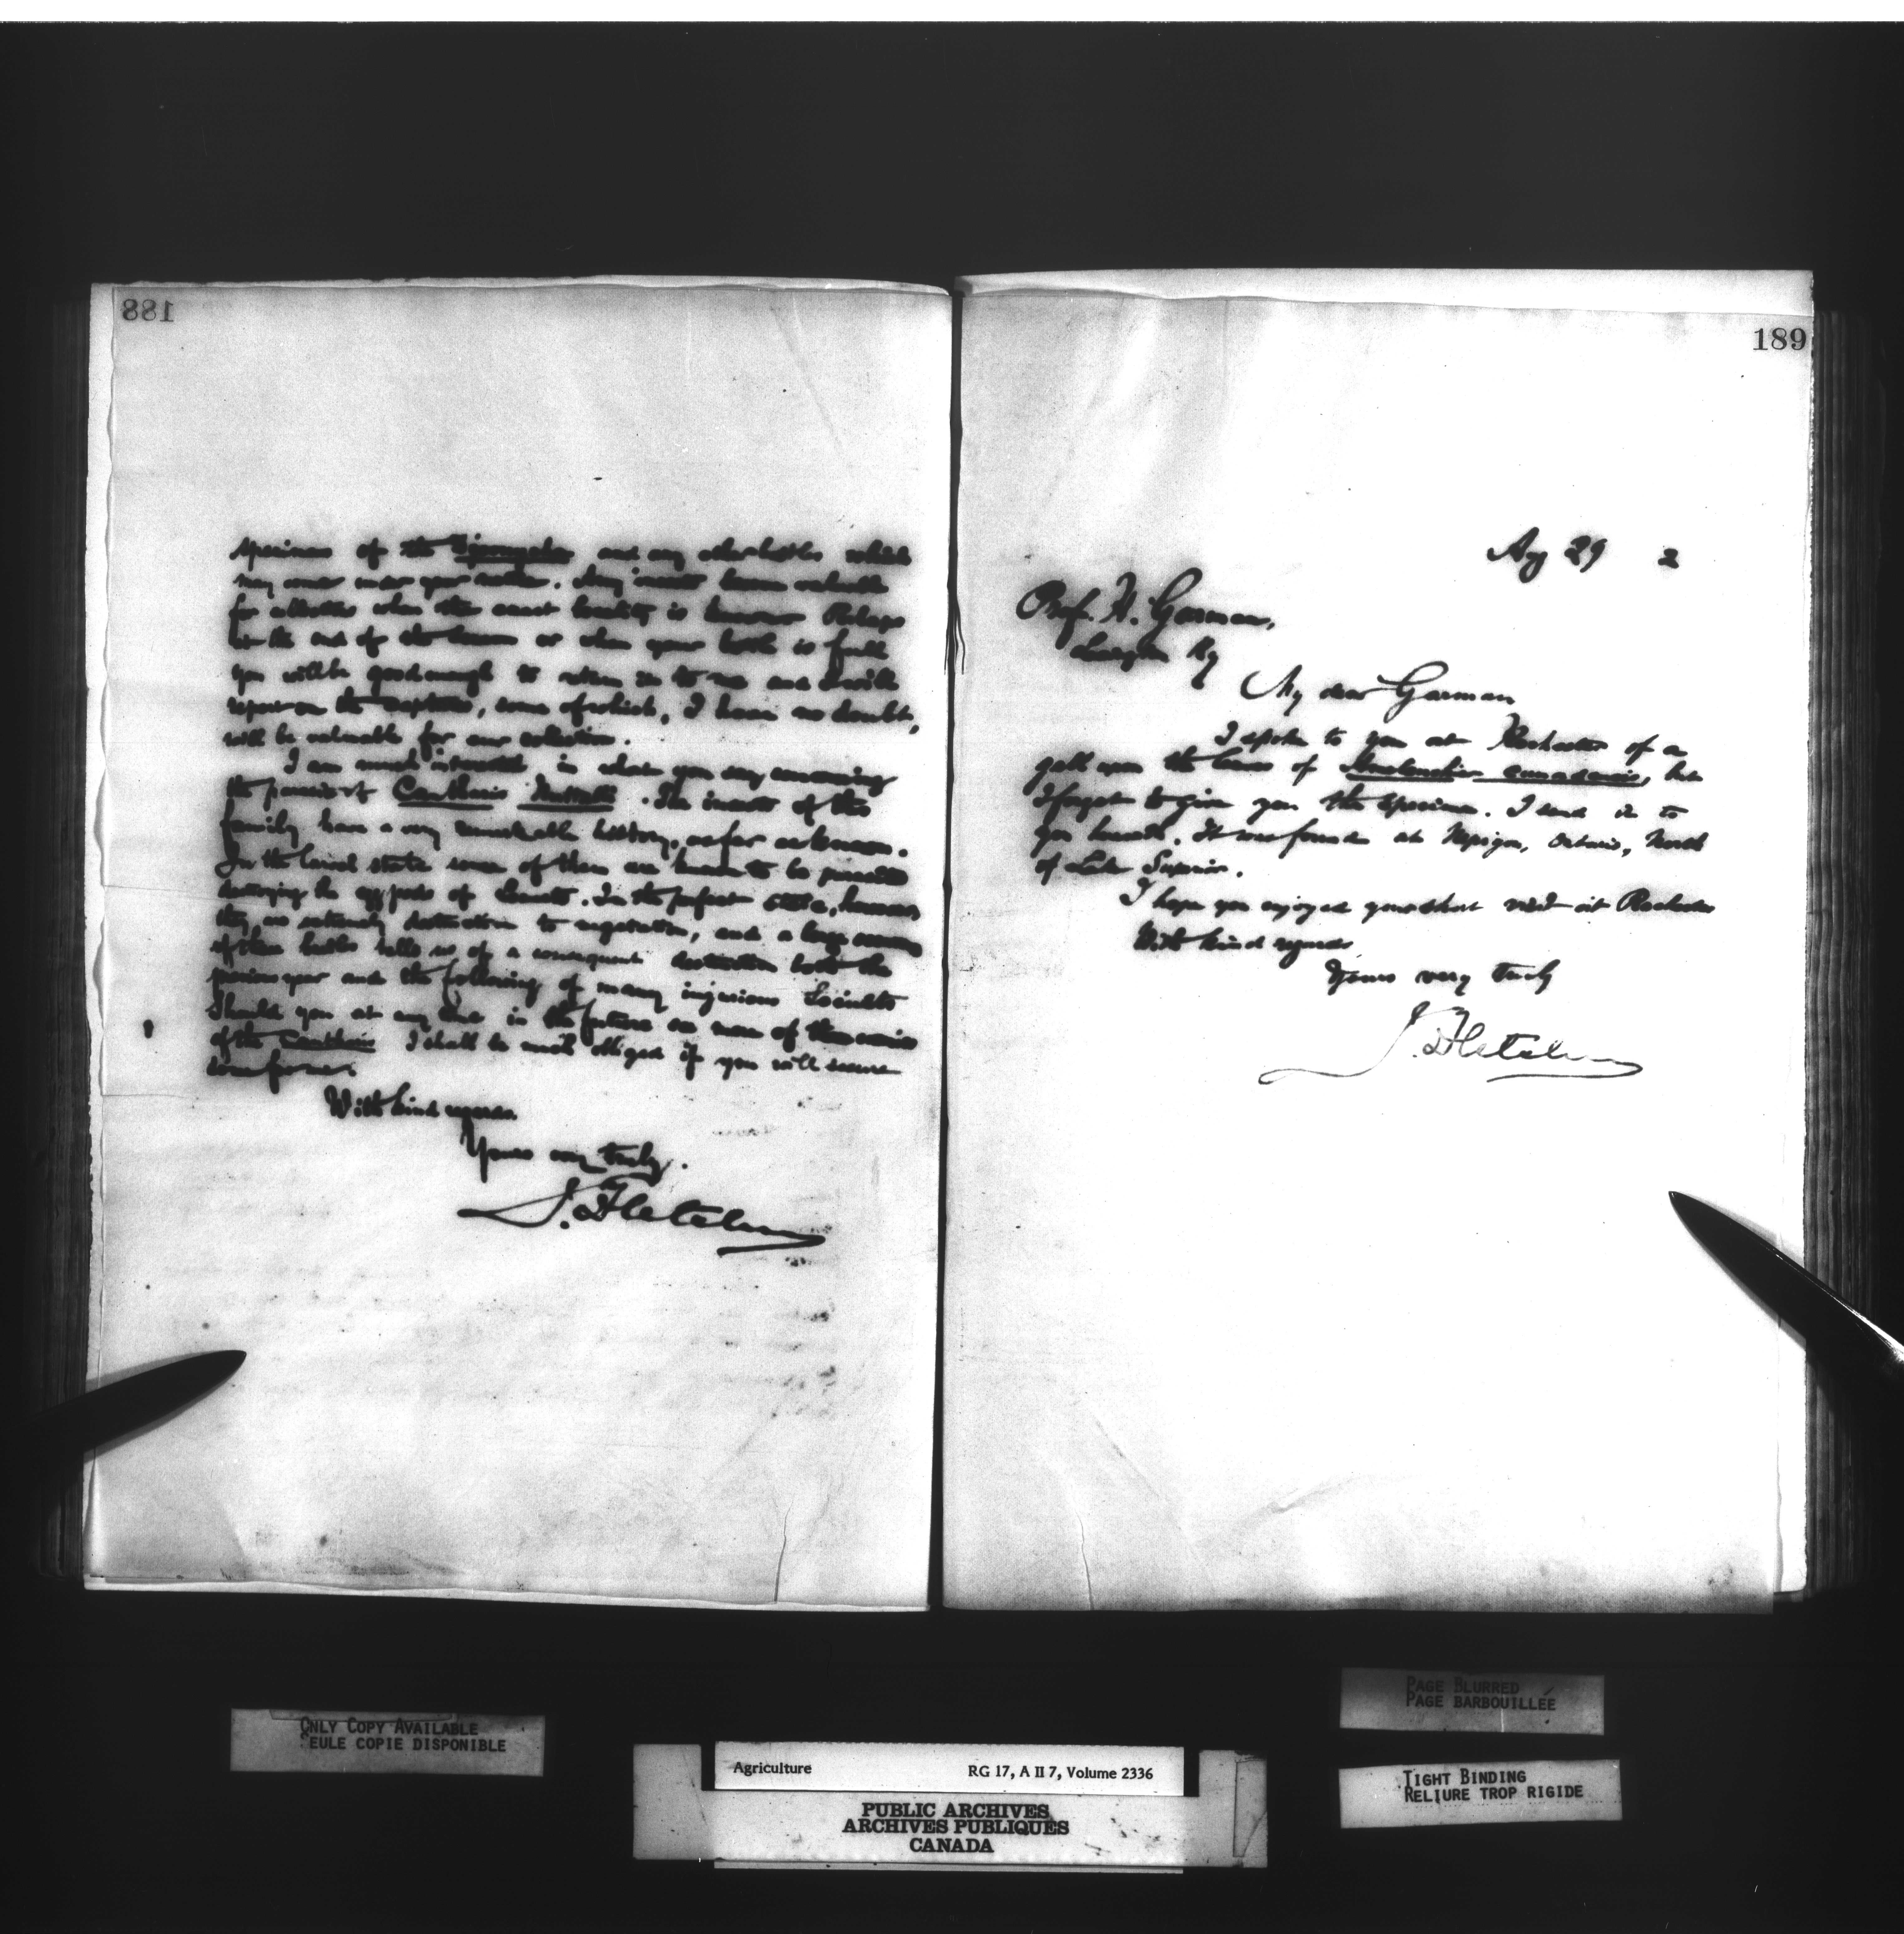 188
specimens of the and any other beetles which
may come under your notice. Any insects known valuable
for collection when the exact locality is known Perhaps
in the end of the season or when your bottle is full
you will be good enough to return it to me and I will
report on the captures, some of which, I have no doubt,
will be valuable for our collection.
I am much interested in what you say concerning
the presence of Cantharis Nuttalli. The insects of this
family have a very remarkable history, as far as known.
In the larval state some of them are known to be parasitic
destroying the egg pods of locusts. In the perfect state, however
they are extremely destructive to vegetation, and a large
of these beetles tells us of a consequent destruction both the
previous year and the following of many injurious Locusts
Should you at any time in the future see more of
of the Cantharis I shall be much obliged if you will secure
some for me.
With kind regards.
Yours very truly.
J. Fletcher
189
Aug 29 2
Prof. H. Garman,
Lexington Ky
My dear Garman
I spoke to you at Rochester of a
gall upon the leaves of canadensis, but
I forgot to give you the specimen. I send it to
you herewith. It was found at Nepigon, Ontario, North
of Lake Superior.
I hope you enjoyed your short visit at Rochester
With kind regards
Yours very truly
J. Fletcher
ONLY COPY AVAILABLE
SEULE COPIE DISPONIBLE
PAGE BLURRED
PAGE BARBOUILLÉE
TIGHT BINDING
RELIURE TROP RIGIDE
Agriculture RG 17, A II 7, Volume 2336
PUBLIC ARCHIVES
ARCHIVES PUBLIQUES
CANADA